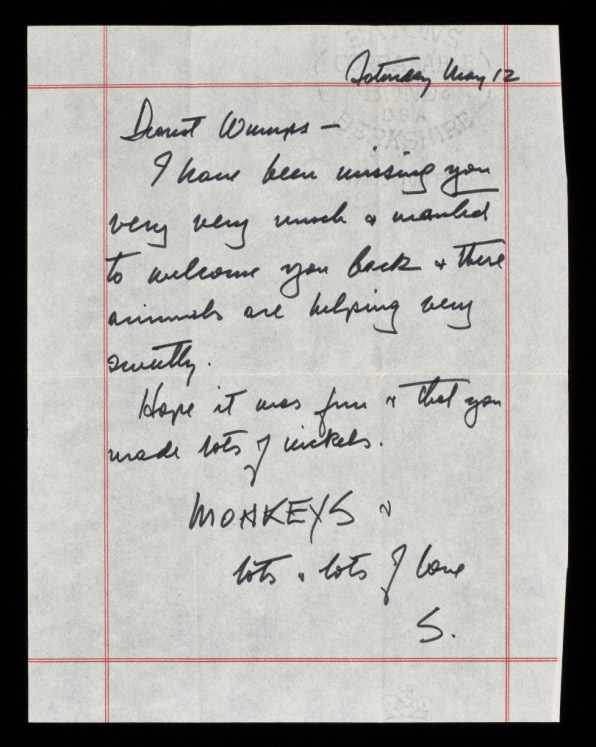 Saturday May 12
Dearest Wumps –
I have been missing you
very very much & wanted
to welcome you back & these
animals are helping very
sweetly.
Hope it was fun & that you
made lots of nickels.
MONKEYS &
lots & lots of love
S.
BERKSHIRE
USA